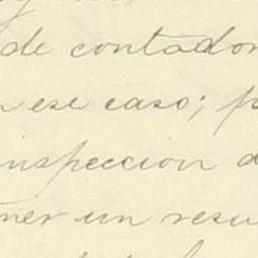 de contador
ese caso; p
inspeccion d
ner un resu